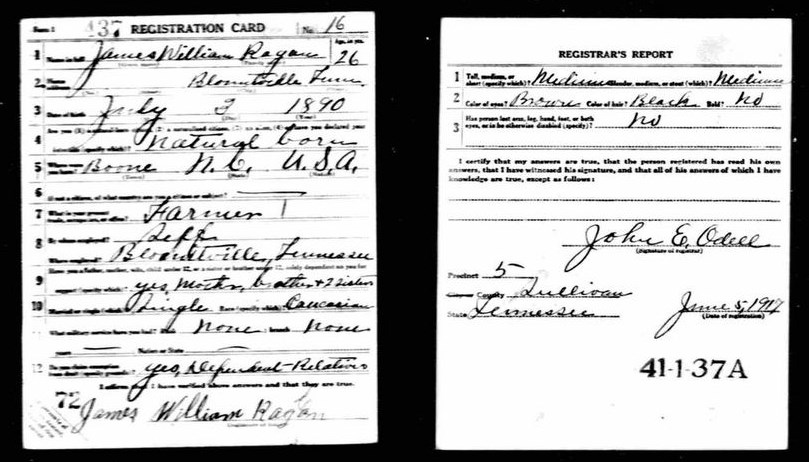 Form 1 437 REGISTRATION CARD No. 16
1 Name in full James William Ragan Age, in yrs. 26
2 Home address Blountville Tenn.
3 Date of birth July 2 1890
(Month) (Day) (Year)
4 Are you (1) a natural-born citizen, (2) a naturalized citizen, (3) an alien, (4) or have you declared your
intention (specify which)? Natural born
5 Where were you born? Boone N.C. U.S.A.
(Town) (State) (Nation)
6 If not a citizen, of what country are you a citizen or subject?
7 What is your present trade, occupation, or office? Farmer
8 By whom employed? Self
Where employed? Blountville, Tennessee
9 Have you a father, mother, wife, child under 12, or a sister or brother under 12, solely dependent on you for
support (specify which)? yes, Mother, brother + 2 sisters
10 Married or single (which)? Single Race (specify which)? Caucasian
11 What military service have you had? Rank None ; branch None
years Nation or State
12 Do you claim exemption from draft (specify grounds)? yes, Dependent Relatives
I affirm that I have verified above answers and that they are true.
72 James William Ragan
REGISTRAR'S REPORT
1 Tall, medium, or short (specify which)? Medium Slender, medium, or stout (which)? Medium
2 Color of eyes? Brown Color of hair? Black Bald? No
3 Has person lost arm, leg, hand, foot, or both
eyes, or is he otherwise disabled (specify)? No
I certify that my answers are true, that the person registered has read his own
answers, that I have witnessed his signature, and that all of his answers of which I have
knowledge are true, except as follows:
John E. Odell
(Signature of registrar)
Precinct 5
County Sullivan
State Tennessee June 5, 1917
(Date of registration)
41-1-37A